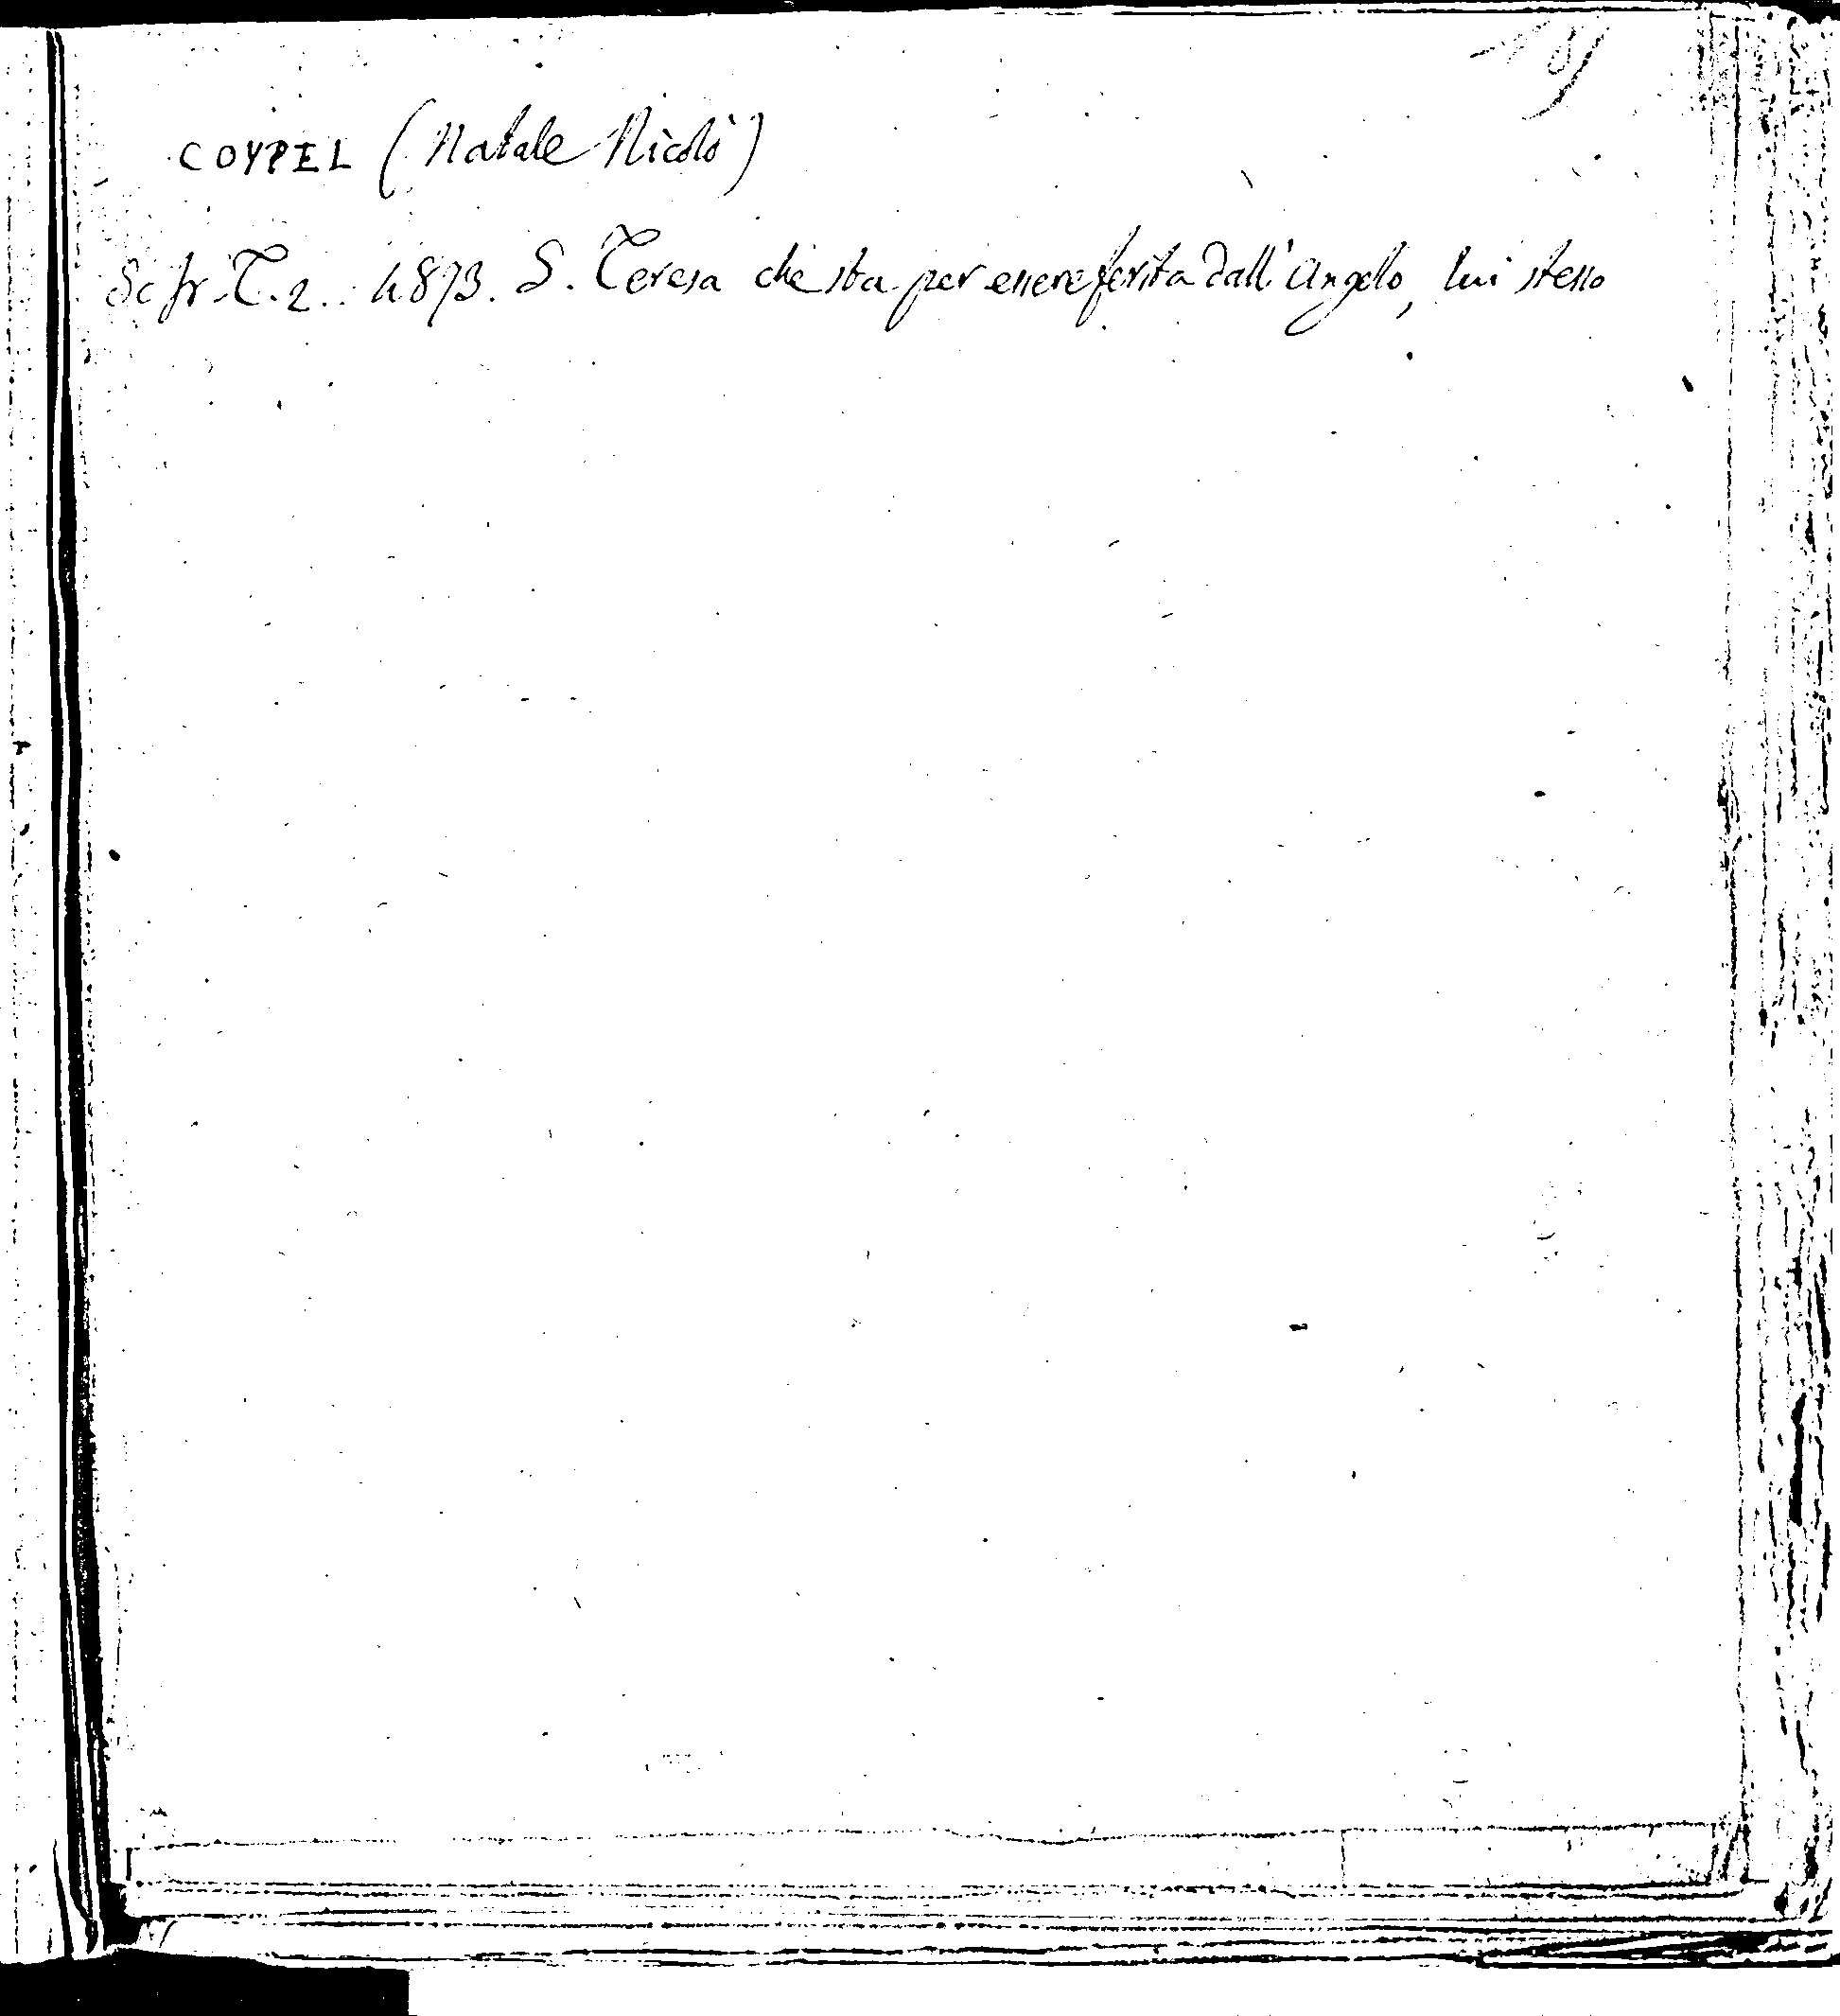 COYPEL (Natale Nicolò)
Sc. fr. T. 2. 4873. S. Teresa che sta per essere ferita dall'Angelo, lui stesso